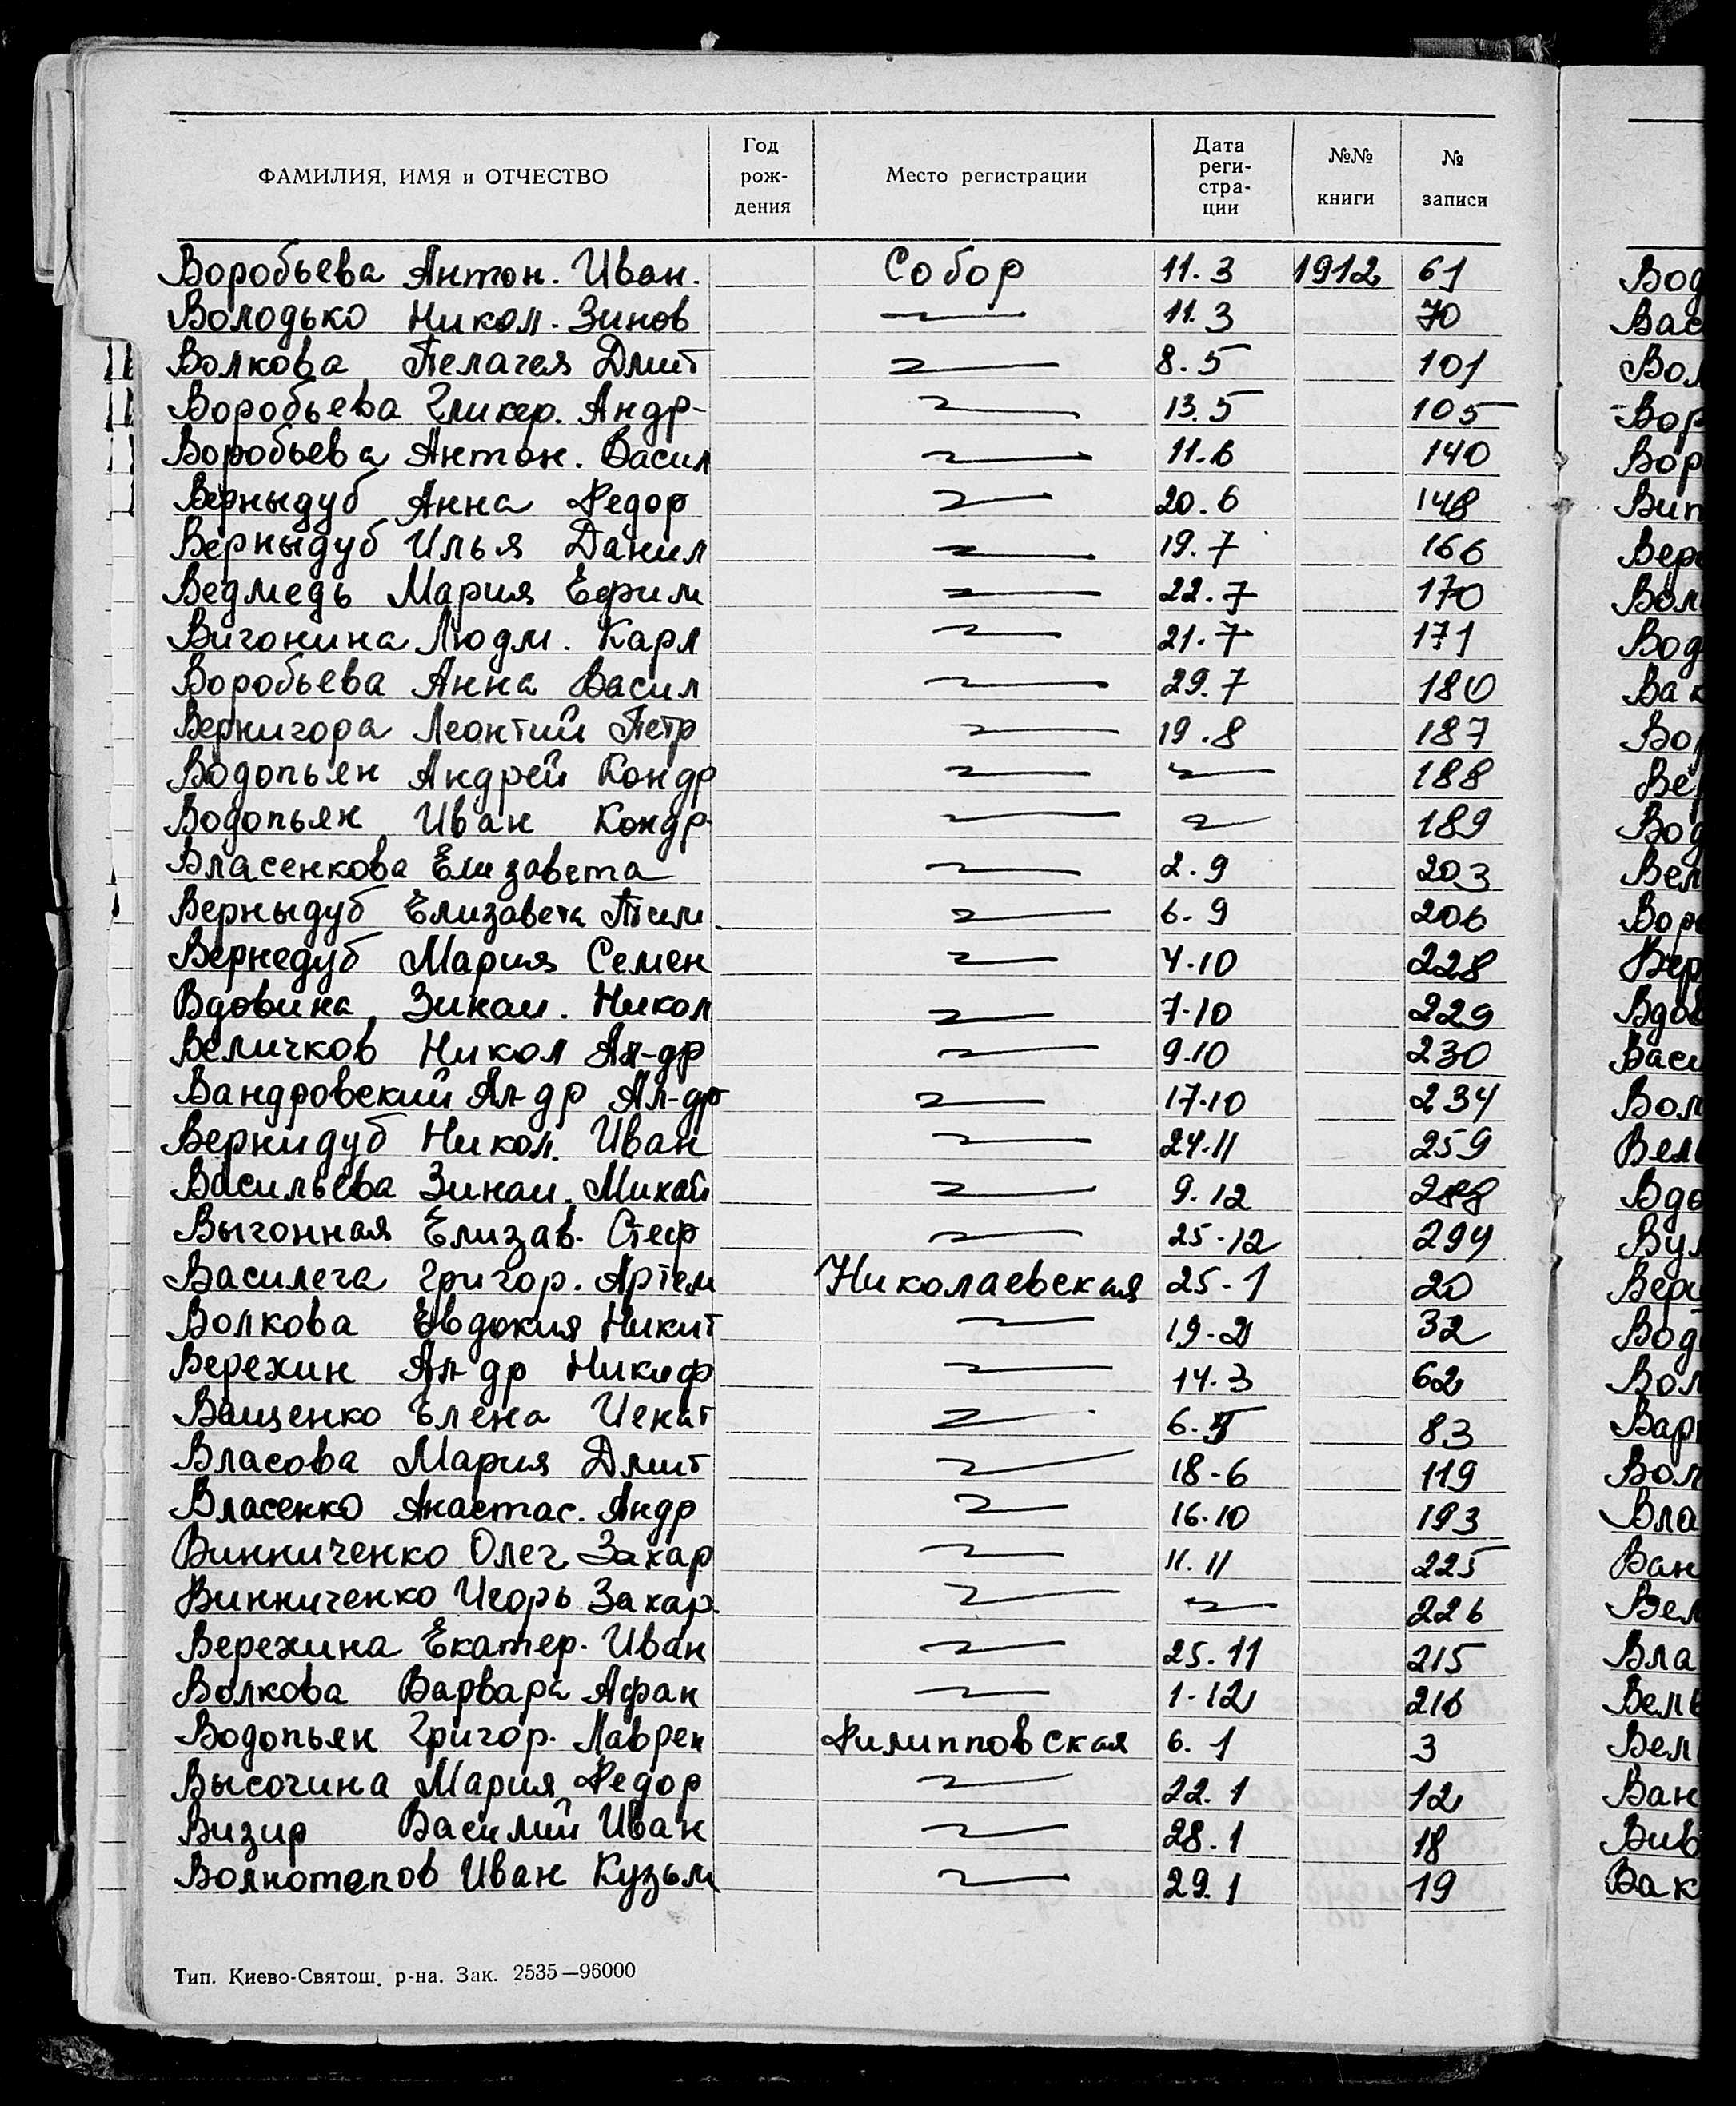 ФАМИЛИЯ, ИМЯ и ОТЧЕСТВО Год рож- дения Место регистрации Дата реги- стра- ции №№ книги № записи
Воробьева Антон. Иван. Собор 11.3 1912 61
Володько Никол. Зинов 11.3 70
Волкова Пелагея Дмит 8.5 101
Воробьева Гликер. Андр- 13.5 105
Воробьева Антон. Васил 11.6 140
Верныдуб Анна Федор 20.6 148
Верныдуб Илья Данил 19.7 166
Ведмедь Мария Ефим 22.7 170
Вигонина Людм. Карл 21.7 171
Воробьева Анна Васил 29.7 180
Вернигора Леонтий Петр 19.8 187
Водопьян Андрей Кондр 188
Водопьян Иван Кондр. 189
Власенкова Елизавета 2.9 203
Верныдуб Елизавета 6.9 206
Вернедуб Мария Семен 4.10 228
Вдовина Зинаи. Никол 7.10 229
Величков Никол Ал-др 9.10 230
Вандровский Ал-др Ал-др 17.10 234
Вернидуб Никол. Иван 24.11 259
Васильева Зинаи. Михай 9.12 288
Выгонная Елизав. Стеф 25.12 294
Василега Григор. Артем Николаевская 25-1 20
Волкова Евдокия Никит 19.2 32
Верехин Ал-др Никиф 14.3 62
Ващенко Елена 83
Власова Мария Дмит 18-6 119
Власенко Анастас. Андр 16.10 193
Винниченко Олег Захар 11.11 225
Винниченко Игорь Захар. 226
Верехина Екатер. Иван 25.11 215
Волкова Варвара Афан 1-12 216
Водопьян Григор. Лаврен Филипповская 6.1 3
Высочина Мария Федор 22.1 12
Визир Василий Иван 28.1 18
Волкотепов Иван Кузьм 29.1 19
Тип. Киево-Святош. р-на. Зак. 2535—96000